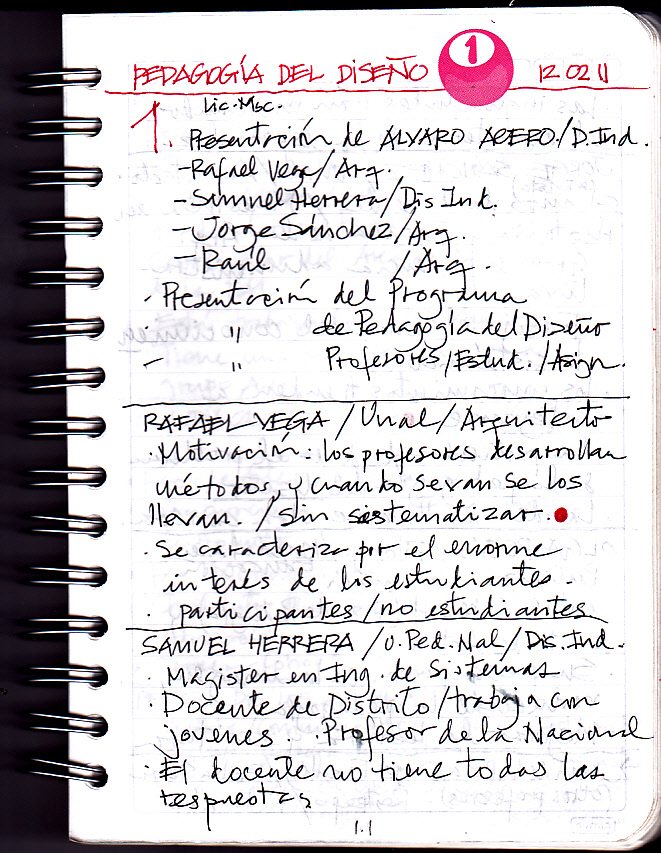 PEDAGOGÍA DEL DISEÑO 1 12 02 11
Lic. Msc.
1. Presentación de ALVARO ACERO./D.Ind.
- Rafael Vega/Arq.
- Samuel Herrera/Dis Ind.
- Jorge Sánchez/Arq.
- Raúl /Arq.
· Presentación del Programa
· " de Pedagogía del Diseño
- " Profesores/Estud./Asign.
RAFAEL VEGA / Unal / Arquitecto
· Motivación: los profesores desarrollan
métodos, y cuando se van se los
llevan. / Sin sistematizar.
· Se caracteriza por el enorme
interés de los estudiantes.
· participantes / no estudiantes
SAMUEL HERRERA / U. Ped. Nal / Dis. Ind.
· Magister en Ing. de Sistemas
· Docente de Distrito / trabaja con
jovenes. · Profesor de la Nacional
· El docente no tiene todas las
respuestas
1.1